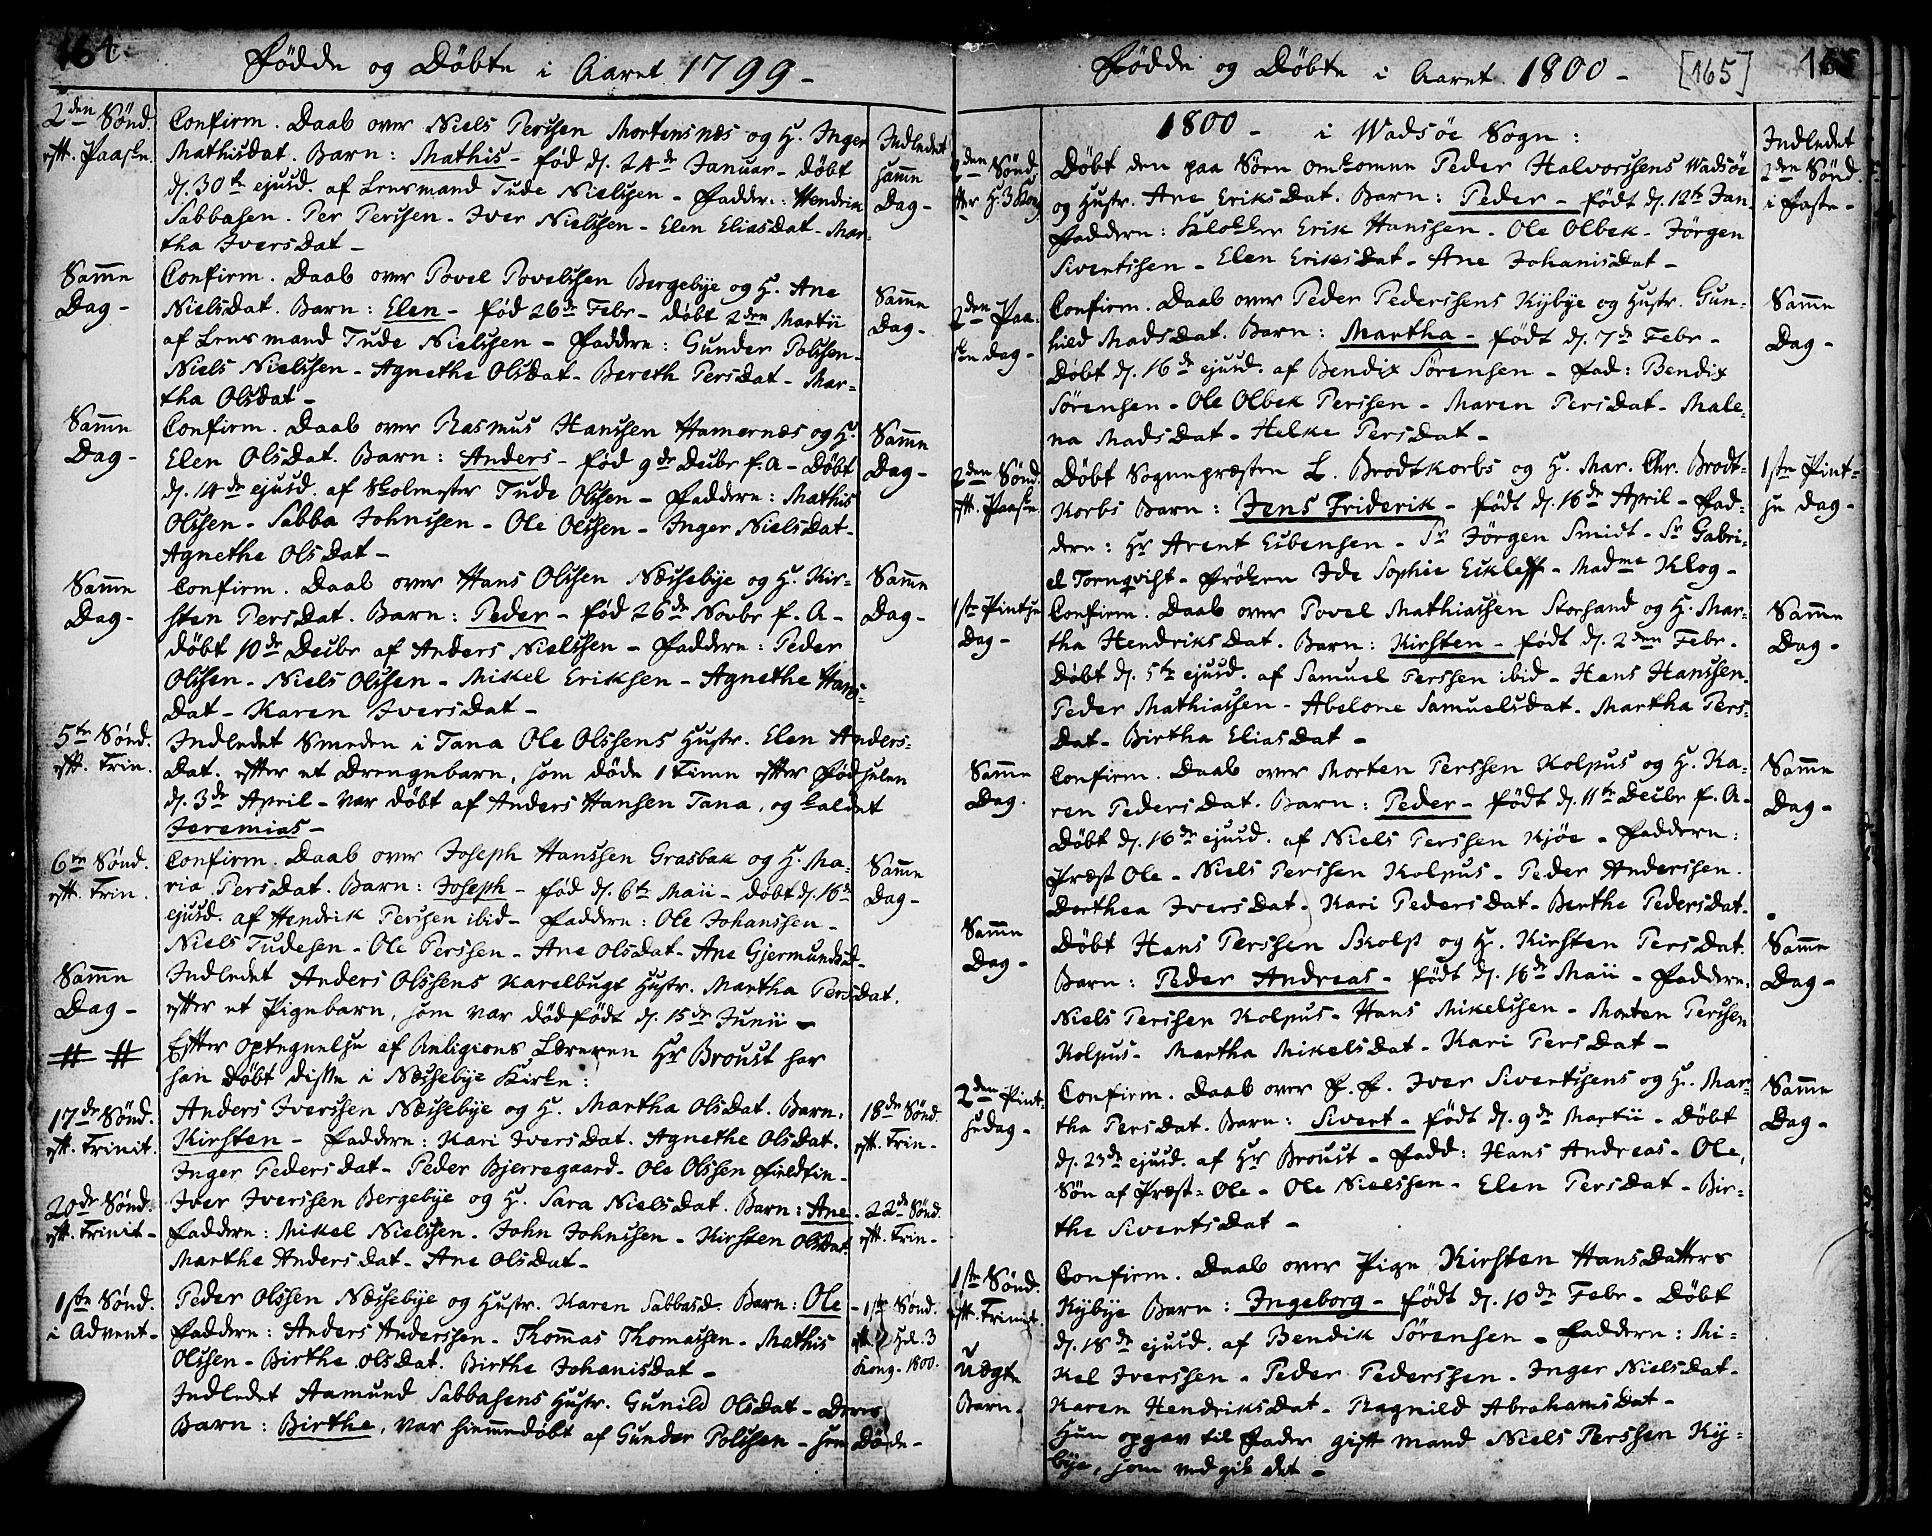 164.
Fødde og Døbte i Aaret 1799 -
2den Sønd.
eft. Paaske.
Confirm. Daab over Niels Perssen Mortensnæs og H. Inger
Mathisdat. Barn: Mathis - fød d. 24de Januar - døbt
d. 30te ejusd. af Lensmand Tude Nielssen - Faddere: Hendrik
Sabbasen. Per Perssen - Iver Nielssen - Elen Eliasdat - Mar-
tha Iversdat -
Indledet
samme
Dag -
Samme
Dag -
Confirm. Daab over Povel Povelssen Bergebye og H. Ane
Nielsdat. Barn: Elen - fød 26de Febr - døbt 2den Martii
af Lensmand Tude Nielssen - Faddere: Gunder Polssen -
Niels Nielssen - Agnethe Olsdat - Bereth Persdat - Mar-
tha Olsdat -
Samme
Dag -
Samme
Dag -
Confirm. Daab over Rasmus Hanssen Hamernæs og H.
Elen Olsdat. Barn: Anders - fød 9de Decbr f. A - Døbt
d. 14de ejusd. af Skolmester Tude Olssen - Faddere: Mathis
Olssen - Sabba Johnssen - Ole Olssen - Inger Nielsdat -
Agnethe Olsdat -
Samme
Dag -
Samme
Dag -
Confirm. Daab over Hans Olssen Næssebye og H. Kir-
sten Persdat. Barn: Peder - fød 26de Novbr f. A -
døbt 10de Decbr af Anders Nielssen - Faddere: Peder
Olssen - Niels Olssen - Mikel Eriksen - Agnethe Hans-
dat - Karen Iversdat -
Samme
Dag -
5te Sønd.
eft. Trin.
Indledet Smeden i Tana Ole Olssens Hustr. Elen Anders-
dat. efter et Drengebarn, som døde 1 Time efter Fødselen
d. 3de April - var døbt af Anders Hansen Tana, og kaldet
Jeremias -
6te Sønd.
eft. Trin.
Confirm. Daab over Joseph Hanssen Grasbak og H. Ma-
ria Persdat. Barn: Joseph - fød d. 6te Maii - døbt d. 16de
ejusd. af Hendrik Perssen ibid - Faddere: Ole Johanssen -
Niels Tudesen - Ole Perssen - Ane Olsdat - Ane Gjermundsd -
Samme
Dag -
Samme
Dag -
Indledet Anders Olssens Karelbugt Hustr. Martha Persdat.
efter et Pigebarn, som var dødfødt d. 15de Junii -
# #
Efter Optegnelse af Religions Læreren Hr Broust har
han døbt disse i Næssebye Kirke:
17de Sønd.
eft. Trinit.
Anders Iverssen Næssebye og H. Martha Olsdat. Barn:
Kirsten - Faddere: Kari Iversdat. Agnethe Olsdat.
Inger Pedersdat - Peder Bjerregaard - Ole Olssen Fieldfin -
18de Sønd.
eft. Trin -
20de Sønd.
eft. Trinit -
Iver Iverssen Bergebye og H. Sara Nielsdat. Barn: Ane -
Faddere: Mikel Nielssen - John Johnssen - Kirsten Olsdat.
Marthe Andersdat - Ane Olsdat -
22de Sønd.
eft. Trin -
1ste Sønd.
i Advent -
Peder Olssen Næssebye og Hustr. Karen Sabbasd. Barn: Ole -
Faddere: Anders Anderssen - Thommas Thomassen - Mathis
Olssen - Birthe Olsdat. Birthe Johanisdat -
1ste Sønd.
eft. Hel. 3
Kong. 1800.
Indledet Aamund Sabbasens Hustr. Gunild Olsdat - Deres
Barn: Birthe, var hiemmedøbt af Gunder Polssen - hen Døde -
Fødde og Døbte i Aaret 1800 -
[165]
165
1800 - i Wadsøe Sogn:
2den Sønd.
efter H. 3 Kong
Døbt den paa Søen omkomne Peder Halvorssens Wadsøe
og Hustr. Ane Eriksdat. Barn: Peder - født d. 12te Jan -
Faddere: Klokker Erik Hanssen - Ole Olbek - Jørgen
Sivertssen - Elen Eriksdat - Ane Johanisdat -
Indledet
2den Sønd.
i Faste -
2den Paa-
ske dag -
Confirm. Daab over Peder Pederssens Kybye og Hustr. Gun-
hild Madsdat. Barn: Martha - født d. 7de Febr -
Døbt d. 16de ejusd. af Bendix Sørensen - Fad: Bendix
Sørensen - Ole Olbek Perssen - Maren Persdat - Male-
na Madsdat - Helke Persdat -
Samme
Dag -
2den Sønd.
eft. Paaske
Døbt Sognepræsten L. Brodtkorbs og H. Mar. Chr. Brodt-
korbs Barn: Jens Friderik - født d. 16de April - Fad-
dere: Hr Arent Eibensen - Sr Jørgen Smidt - Sr Gabri-
el Tornqvist - Frøken Ide Sophie Eikleff - Madme Klog -
1ste Pint-
se dag -
1ste Pintse
Dag -
Confirm. Daab over Povel Mathiassen Storsand og H. Mar-
tha Hendriksdat. Barn: Kirsten - født d. 2den Febr -
Døbt d. 5te ejusd. af Samuel Perssen ibid - Hans Hanssen -
Peder Mathiassen - Abelone Samuelsdat. Martha Pers-
dat - Birtha Eliasdat -
Samme
Dag -
Samme
Dag.
Confirm. Daab over Morten Perssen Kolpus og H. Ka-
ren Pedersdat. Barn: Peder - født d. 11te Decbr f. A -
Døbt d. 16de ejusd. af Niels Perssen Kjøe - Faddere:
Præst Ole - Niels Perssen Kolpus - Peder Anderssen.
Dorthea Iversdat - Kari Pedersdat - Berthe Pedersdat -
Samme
Dag -
Samme
Dag -
Døbt Hans Perssen Skolp og H. Kirsten Persdat.
Barn: Peder Andreas - født d. 16de Maii - Faddere:
Niels Perssen Kolpus - Hans Mikelssen - Morten Perssen
Kolpus - Martha Mikelsdat - Kari Persdat -
Samme
Dag -
2den Pint-
sedag -
Confirm. Daab over F. F. Iver Sivertssens og H. Mar-
tha Persdat. Barn: Sivert - født d. 9de Martii - Døbt
d. 23de ejusd. af Hr Broust - Fadd: Hans Andreas - Ole,
Søn af Præst-Ole - Ole Nielssen - Elen Persdat - Bir-
the Sivertsdat -
Samme
Dag -
1ste Sønd.
eft. Trinit
Uægte
Barn -
Confirm. Daab over Pige Kirsten Hansdatters
Kybye Barn: Ingeborg - født d. 10de Febr - Døbt
d. 18de ejusd. af Bendik Sørensen - Faddere: Mi-
kel Iverssen - Peder Pederssen - Inger Nielsdat -
Karen Hendriksdat - Ragnild Abrahamsdat -
Hun opgav til Fader gift Mand Niels Perssen Ky-
bye, som vedgik det -